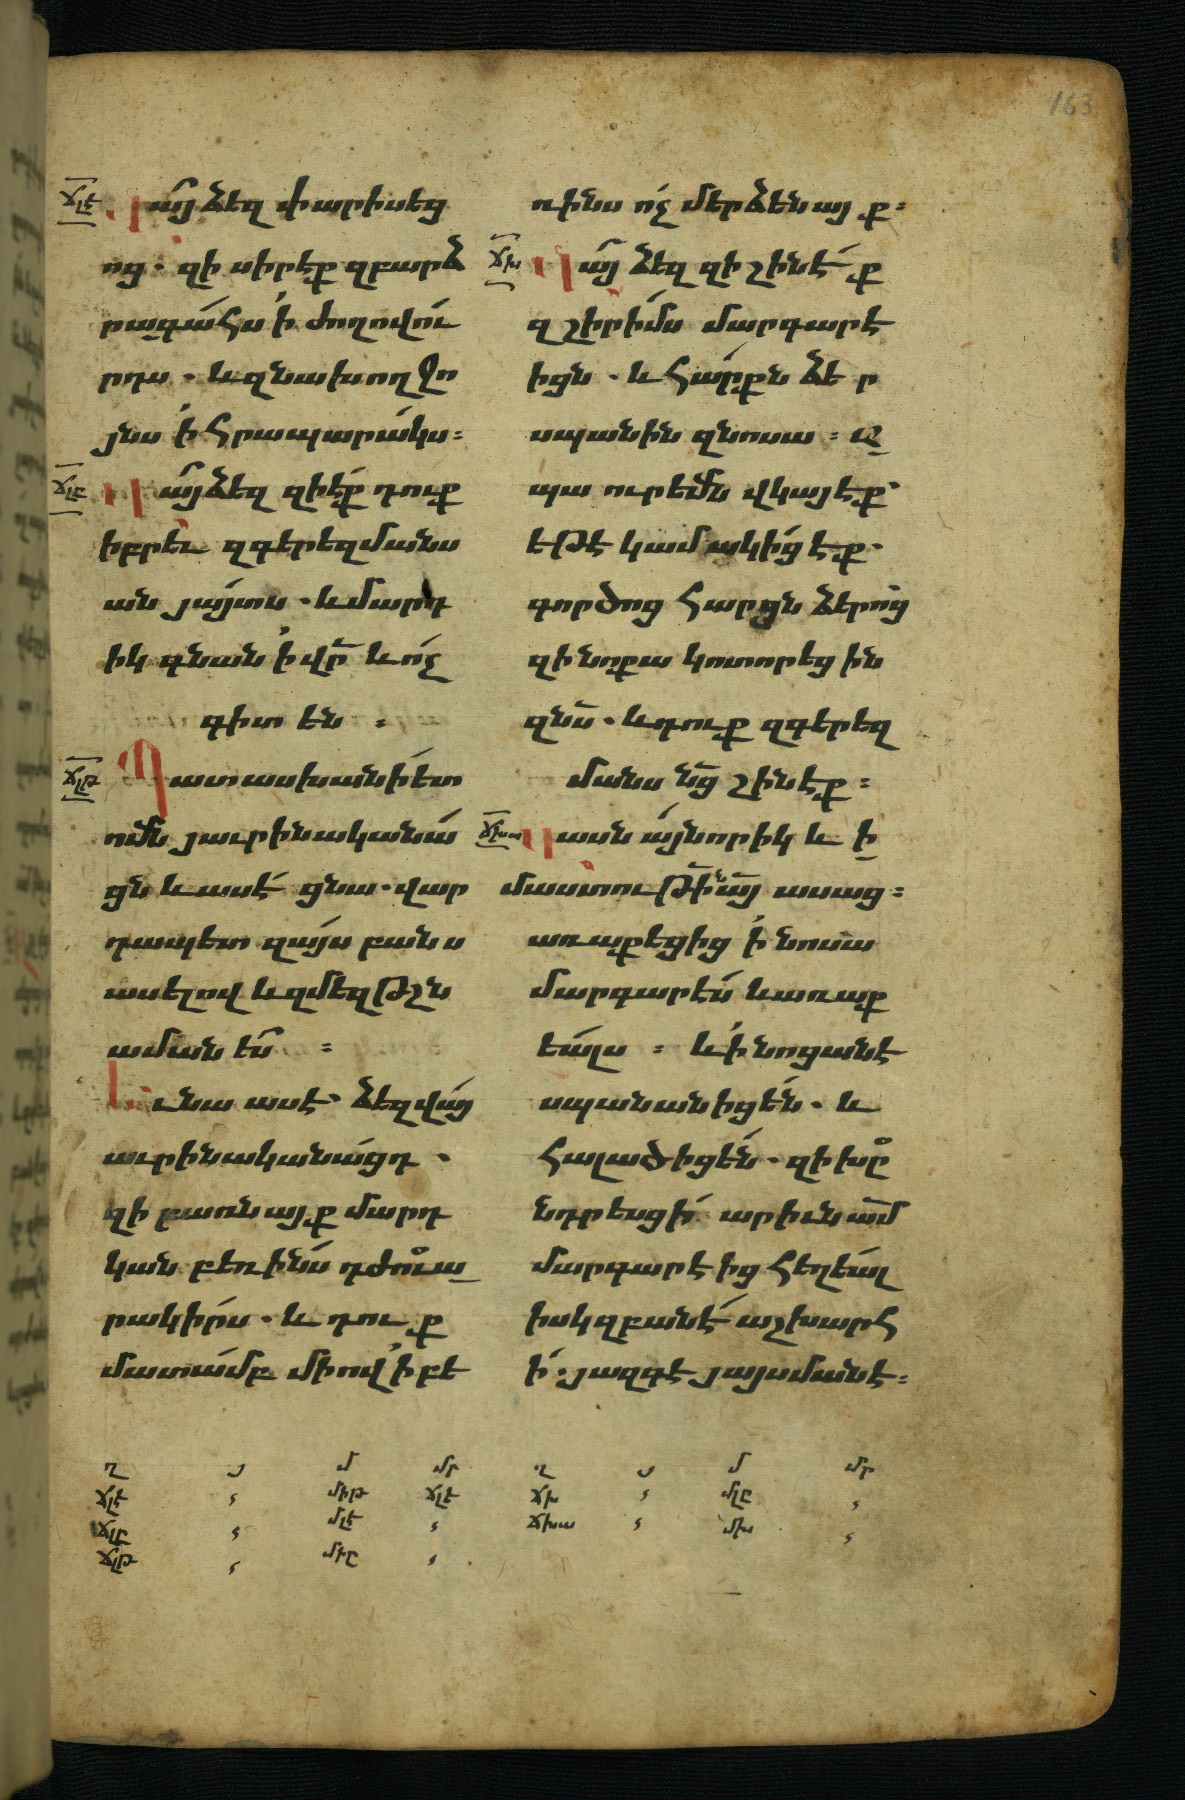 163
ՃԼԷ
Վա՜յ ձեզ փարիսեց
ոց. զի սիրէք զբարձ
րագա́հս ի՛ ժողովու́
րդս. և զնախ ողջո
յնս ի՛ հրապարա́կս։
ՃԼԸ
Վա՜յ ձեզ զի է́ք դուք
իբրեւ զգերեզմանս
ան յա́յտս. և մարդ
իկ գնան ի՛ վր̃ և ո́չ
գիտ են ։
ՃԼԹ
Պատասխանի ե́տ
ոմն̃ յաւրինականա́
ցն և ասէ́ ցնա. վար
դապետ զա́յս բան ս
ասելով և զմեզ թշն
աման ե՜ս ։
Եւ նա ասէ. ձեզ վա́յ
աւրինականա́ցդ .
զի բառնայք մարդ
կան բեռի́նս դժուա
րակի́րս. և դու ք
մատա́մբ միով ի՛ բե
ռինս ո́չ մերձենայ ք։
ՃԽ
Վա՜յ ձեզ զի շինէ́ ք
զ շիրի́մս մարգարէ
իցն . և հա́րքն ձե ր
սպանին զնոսա ։ Ա
պա ուրեմն̃ վկայէք.
եթէ կամակի́ց է ք.
գործոց հարցն ձերո́ց
զի նոքա կոտորեց ին
զնս̃. և դուք զգերեզ
մանս նց̃ շինէք ։
ՃԽԱ
Վասն ա́յնորիկ և ի
մաստութի̃ն ա̃յ ասաց ։
առաքեցից ի՛ նոսա
մարգարէ́ս և առաք
եա́լս ։ և ի՛ նոցանէ
սպանանիցե́ն. և
հալածիցե́ն. զի խը̊
նդրեսցի́ արիւն ա̃մ
մարգարէ ից հեղեա́լ
ի սկզբանէ́ աշխարհ
ի́. յազգէ յայսմանէ ։
Ղ Յ Մ ՄՐ Ղ Յ Մ ՄՐ
ՃԼԷ , ՄԻԹ ՃԼԷ ՃԽ , ՄԼԸ ,
ՃԼԸ , ՄԼԷ , ՃԽԱ , ՄԽ ,
ՃԼԹ , ՄԻԸ ,